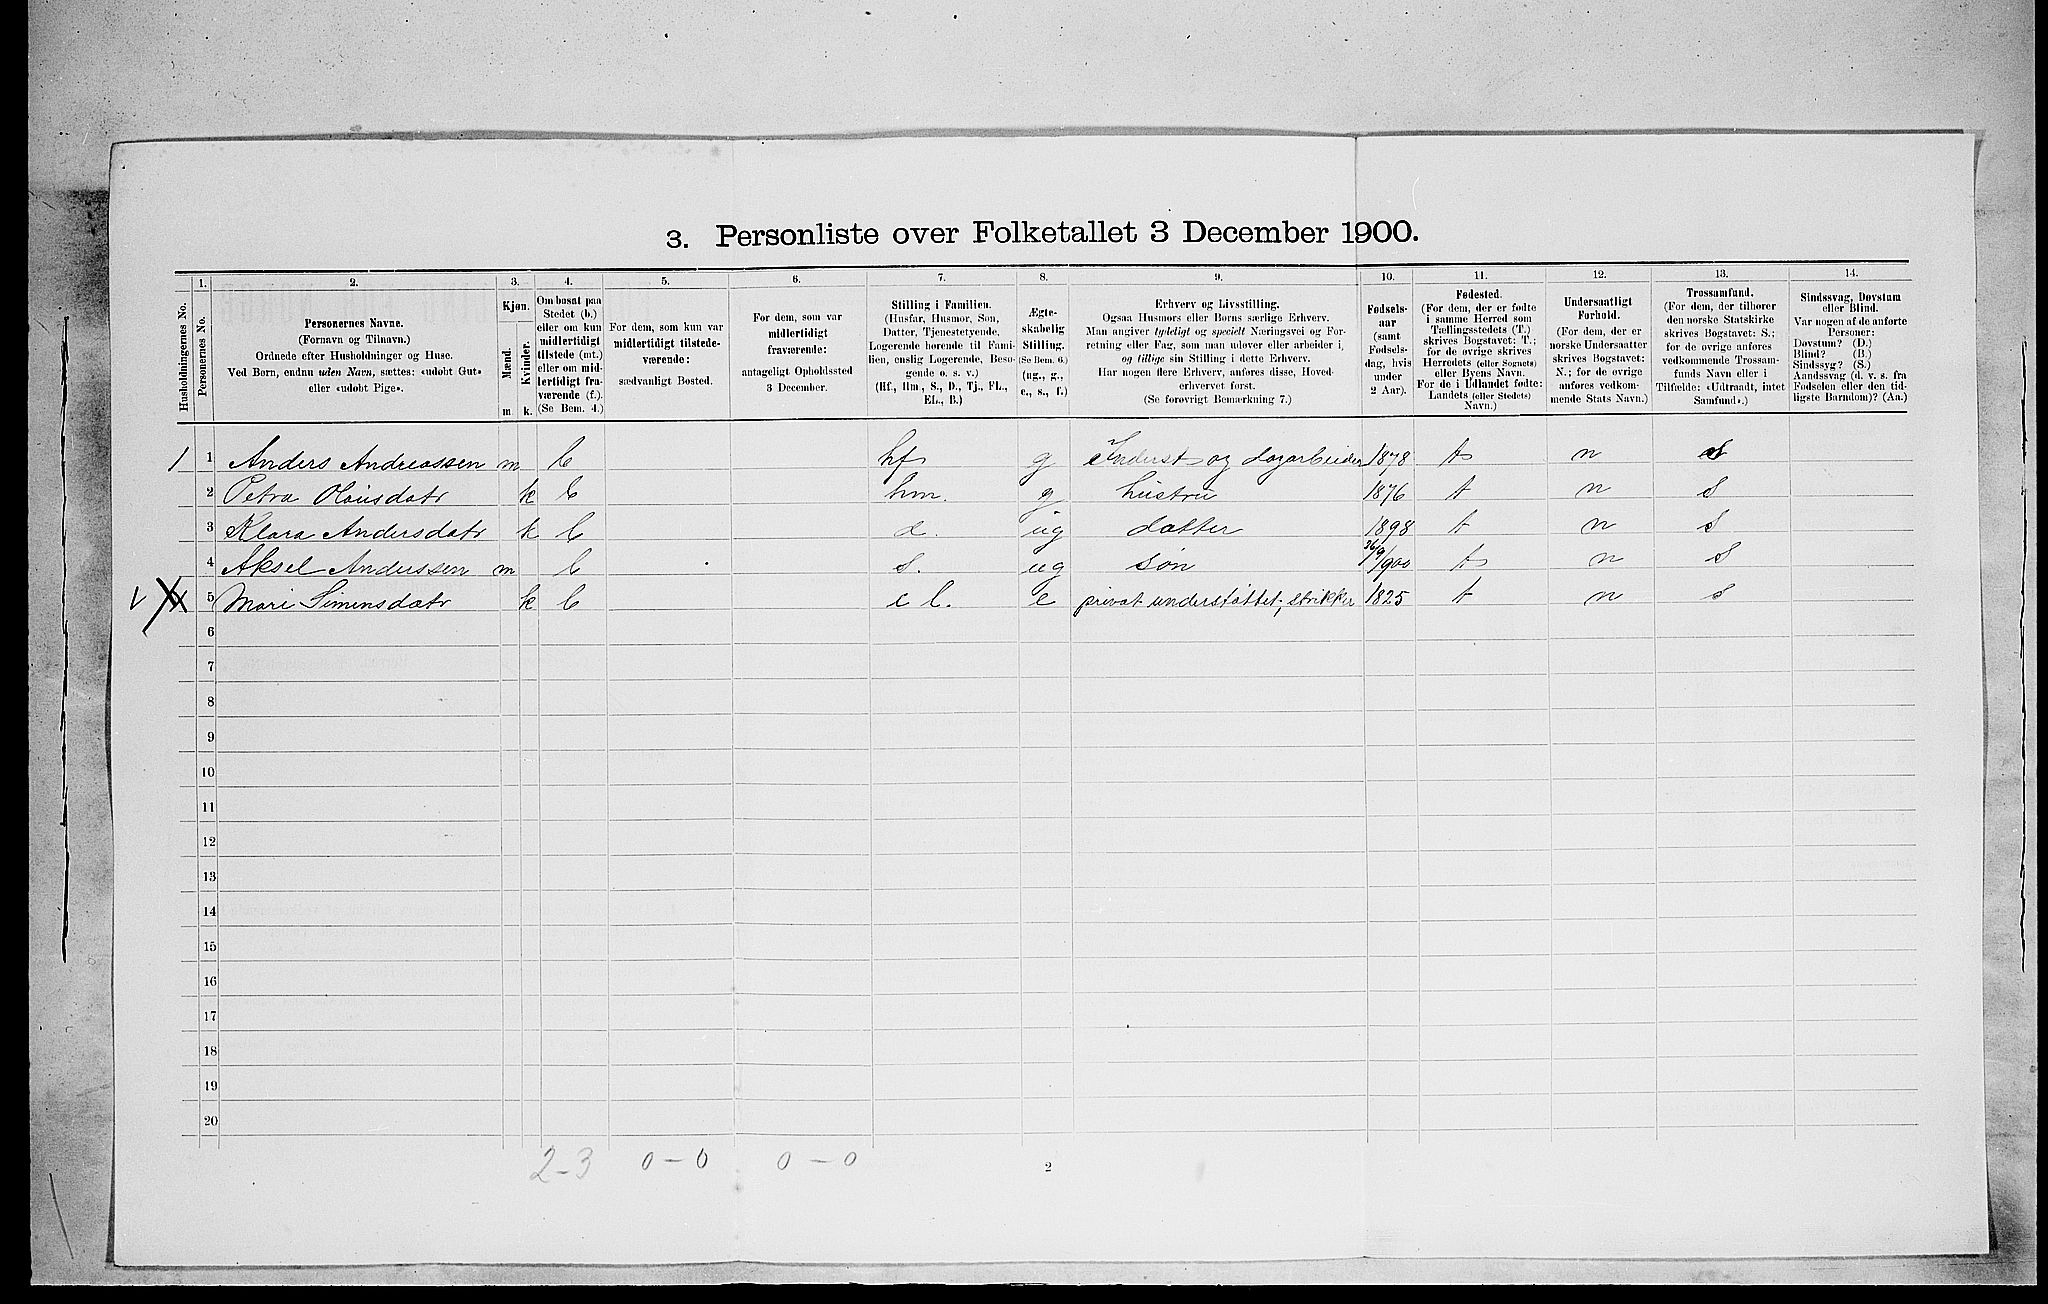 3. Personliste over Folketallet 3 December 1900.
1. 2. 3. 4. 5. 6. 7. 8. 9. 10. 11. 12. 13. 14.
Husholdningernes No.
Personernes No.
Personernes Navne.
(Fornavn og Tilnavn.)
Ordnede efter Husholdninger og Huse.
Ved Børn, endnu uden Navn, sættes: «udøbt Gut»
eller «udøbt Pige».
Kjøn.
Mænd.
Kvinder.
m. k.
Om bosat paa
Stedet (b.)
eller om kun
midlertidigt
tilstede (mt.)
eller om mid-
lertidigt fra-
værende (f.).
(Se Bem. 4.)
For dem, som kun var
midlertidigt tilstede-
værende:
sædvanligt Bosted.
For dem, som var
midlertidigt
fraværende:
antageligt Opholdssted
3 December.
Stilling i Familien.
(Husfar, Husmor, Søn,
Datter, Tjenestetyende,
Logerende hørende til Fami-
lien, enslig Logerende, Besø-
gende o. s. v.)
(Hf., Hm., S., D., Tj., FL.,
EL., B.)
Ægte-
skabelig
Stilling.
(Se Bem. 6.)
(ug., g.,
e., s., f.)
Erhverv og Livsstilling.
Ogsaa Husmors eller Børns særlige Erhverv.
Man angiver tydeligt og specielt Næringsvei og For-
retning eller Fag, som man udøver eller arbeider i,
og tillige sin Stilling i dette Erhverv.
Har nogen flere Erhverv, anføres disse, Hoved-
erhvervet først.
(Se forøvrigt Bemærkning 7.)
Fødsels-
aar
(samt
Fødsels-
dag, hvis
under
2 Aar).
Fødested.
(For dem, der er fødte
i samme Herred som
Tællingsstedets (T.)
skrives Bogstavet: T.;
for de øvrige skrives
Herredets (eller Sognets)
eller Byens Navn.
For de i Udlandet fødte:
Landets (eller Stedets)
Navn.)
Undersaatligt
Forhold.
(For dem, der er
norske Undersaatter
skrives Bogstavet:
N.; for de øvrige
anføres vedkom-
mende Stats Navn.)
Trossamfund.
(For dem, der tilhører
den norske Statskirke
skrives Bogstavet: S.;
for de øvrige anføres
vedkommende Trossam-
funds Navn eller i
Tilfælde: «Udtraadt, intet
Samfund».)
Sindssvag, Døvstum
eller Blind.
Var nogen af de anførte
Personer:
Døvstum? (D.)
Blind? (B.)
Sindssyg? (S.)
Aandssvag (d. v. s. fra
Fødselen eller den tid-
ligste Barndom)? (Aa.)
1 1 Anders Andreassen m b hf g Inderst og dagarbeider 1878 t n s
2 Petra Olausdatr k b hm. g hustru 1876 t n s
3 Klara Andersdatr k b d. ug datter 1898 t n s
4 Aksel Anderssen m b s. ug søn 26/9/900 t n s
5 Mari Simensdatr k b e l. e privat understøttet; strikker 1825 t n s
6
7
8
9
10
11
12
13
14
15
16
17
18
19
20
2-3 0-0 0-0 2